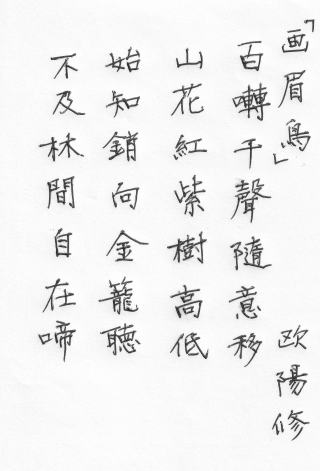 「画眉鳥」 欧陽修
百囀千聲隨意移
山花紅紫樹高低
始知鎖向金籠聴
不及林間自在啼